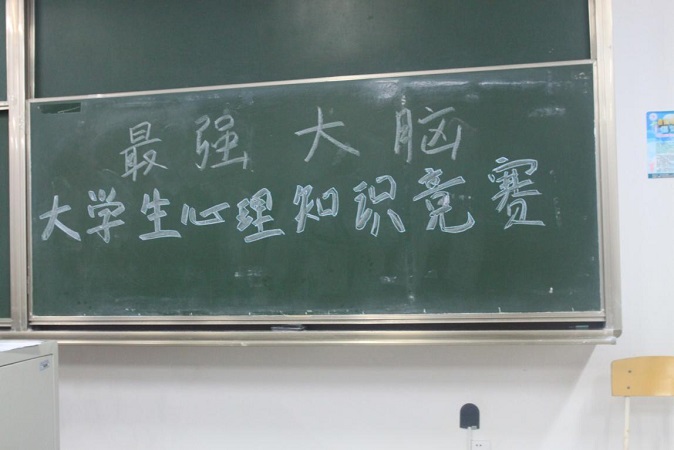 最强大脑
大学生心理知识竞赛